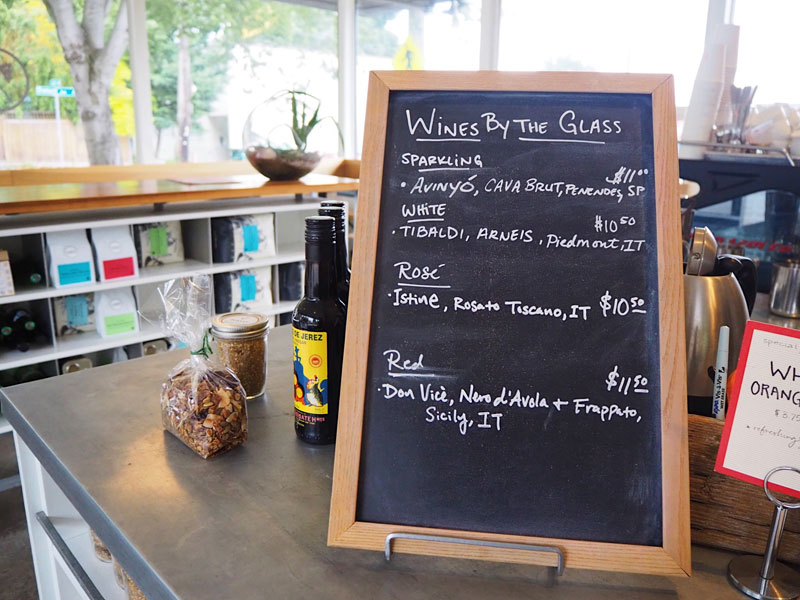 WINES BY THE GLASS
SPARKLING
$11.00
• AVINYÓ, CAVA BRUT, PENENDES, SP
WHITE
$10.50
• TIBALDI, ARNEIS, Piedmont, IT
Rosé
• Istine, Rosato Toscano, IT $10.50
Red
$11.50
• Don Vicè, Nero d'Avola + Frappato,
Sicily, IT
DE JEREZ
special
ORANG
$3.75
• refreshing